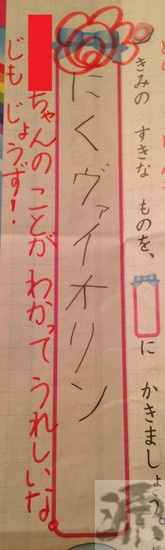 きみの すきな ものを、 に かきましょう。
にくヴァイオリン
ちゃんのことが わかって うれしいな。
じも じょうず!